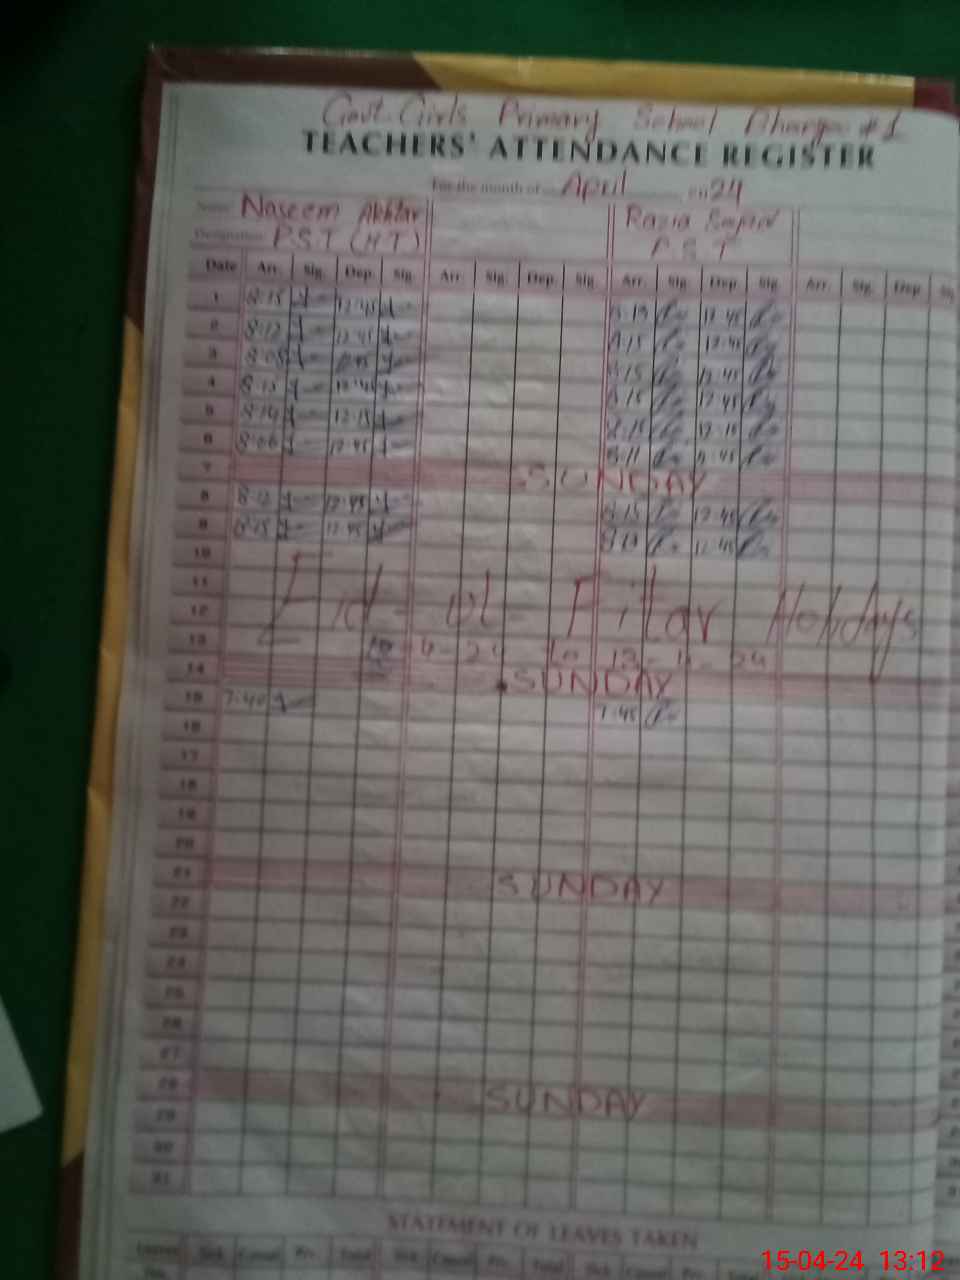 Govt. Girls Primary School #1
TEACHERS' ATTENDANCE REGISTER
For the month of April 24
Name Naseem Akhtar Razia
Designation P.S.T (H.T) P.S.T
Date Arr. Sig. Dep. Sig. Arr. Sig. Dep. Sig. Arr. Sig. Dep. Sig. Arr. Sig. Dep.
1 8:15 12:45 12:45
2 8:12 12:45 8:15 12:45
3 8:05 12:45 8:15 12:45
4 12:45 8:15 12:45
5 12:15 8:15 12:15
6 8:06 12:45 8:11 12:45
7 SUNDAY
8 8:12 12:45 8:15 12:45
9 8:15 12:45 12:45
10
11
12 Eid-ul-Fitar Holidays
13 10-4-24 to 13-4-24
14 SUNDAY
15 7:40 7:45
16
17
18
19
20
21 SUNDAY
22
23
24
25
26
27
28 SUNDAY
29
30
31
STATEMENT OF LEAVES TAKEN
Leaves Sick Casual Prv. Total Sick Casual Prv. Total Sick Casual Prv. Total
15-04-24 13:12